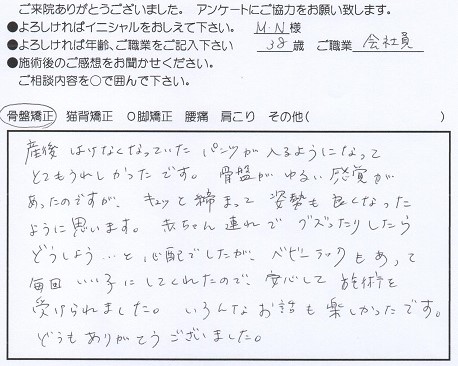 ご来院ありがとうございました。 アンケートにご協力をお願い致します。
●よろしければイニシャルをおしえて下さい。 M.N 様
●よろしければ年齢、ご職業をご記入下さい 38歳 ご職業 会社員
●施術後のご感想をお聞かせください。
ご相談内容を○で囲んで下さい。
骨盤矯正 猫背矯正 O脚矯正 腰痛 肩こり その他( )
産後 はけなくなっていた パンツが 入るようになって
とてもうれしかったです。 骨盤が ゆるい 感覚が
あったのですが、 キュッと 締まって 姿勢も 良くなった
ように 思います。 赤ちゃん 連れで グズったりしたら
どうしよう…と 心配でしたが、 ベビーラックもあって
毎回 いい子に してくれたので、 安心して 施術を
受けられました。 いろんな お話も 楽しかったです。
どうも ありがとうございました。